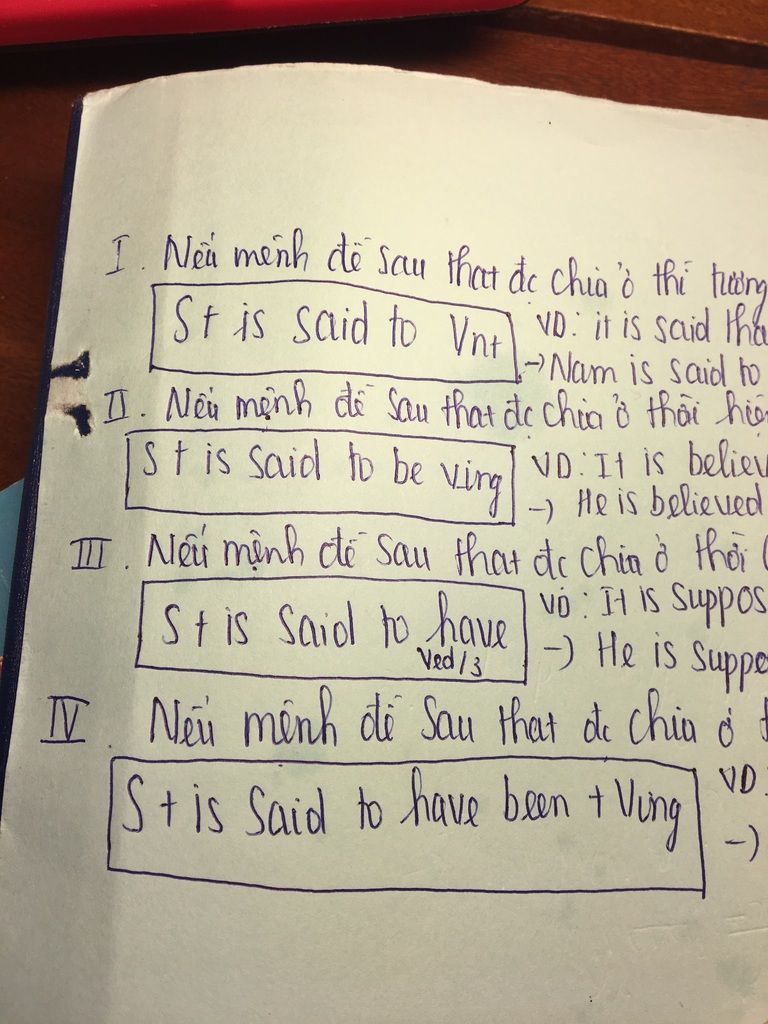 I. Nếu mệnh đề sau that đc chia ở thì tương
S + is said to Vnt
VD: it is said tha
→ Nam is said to
II. Nếu mệnh đề sau that đc chia ở thời hiện
S + is said to be Ving
VD: It is believ
→ He is believed
III. Nếu mệnh đề sau that đc chia ở thời
S + is said to have
Ved/3
VD: It is suppos
→ He is suppo
IV. Nếu mệnh đề sau that đc chia ở t
S + is said to have been + Ving
VD:
→